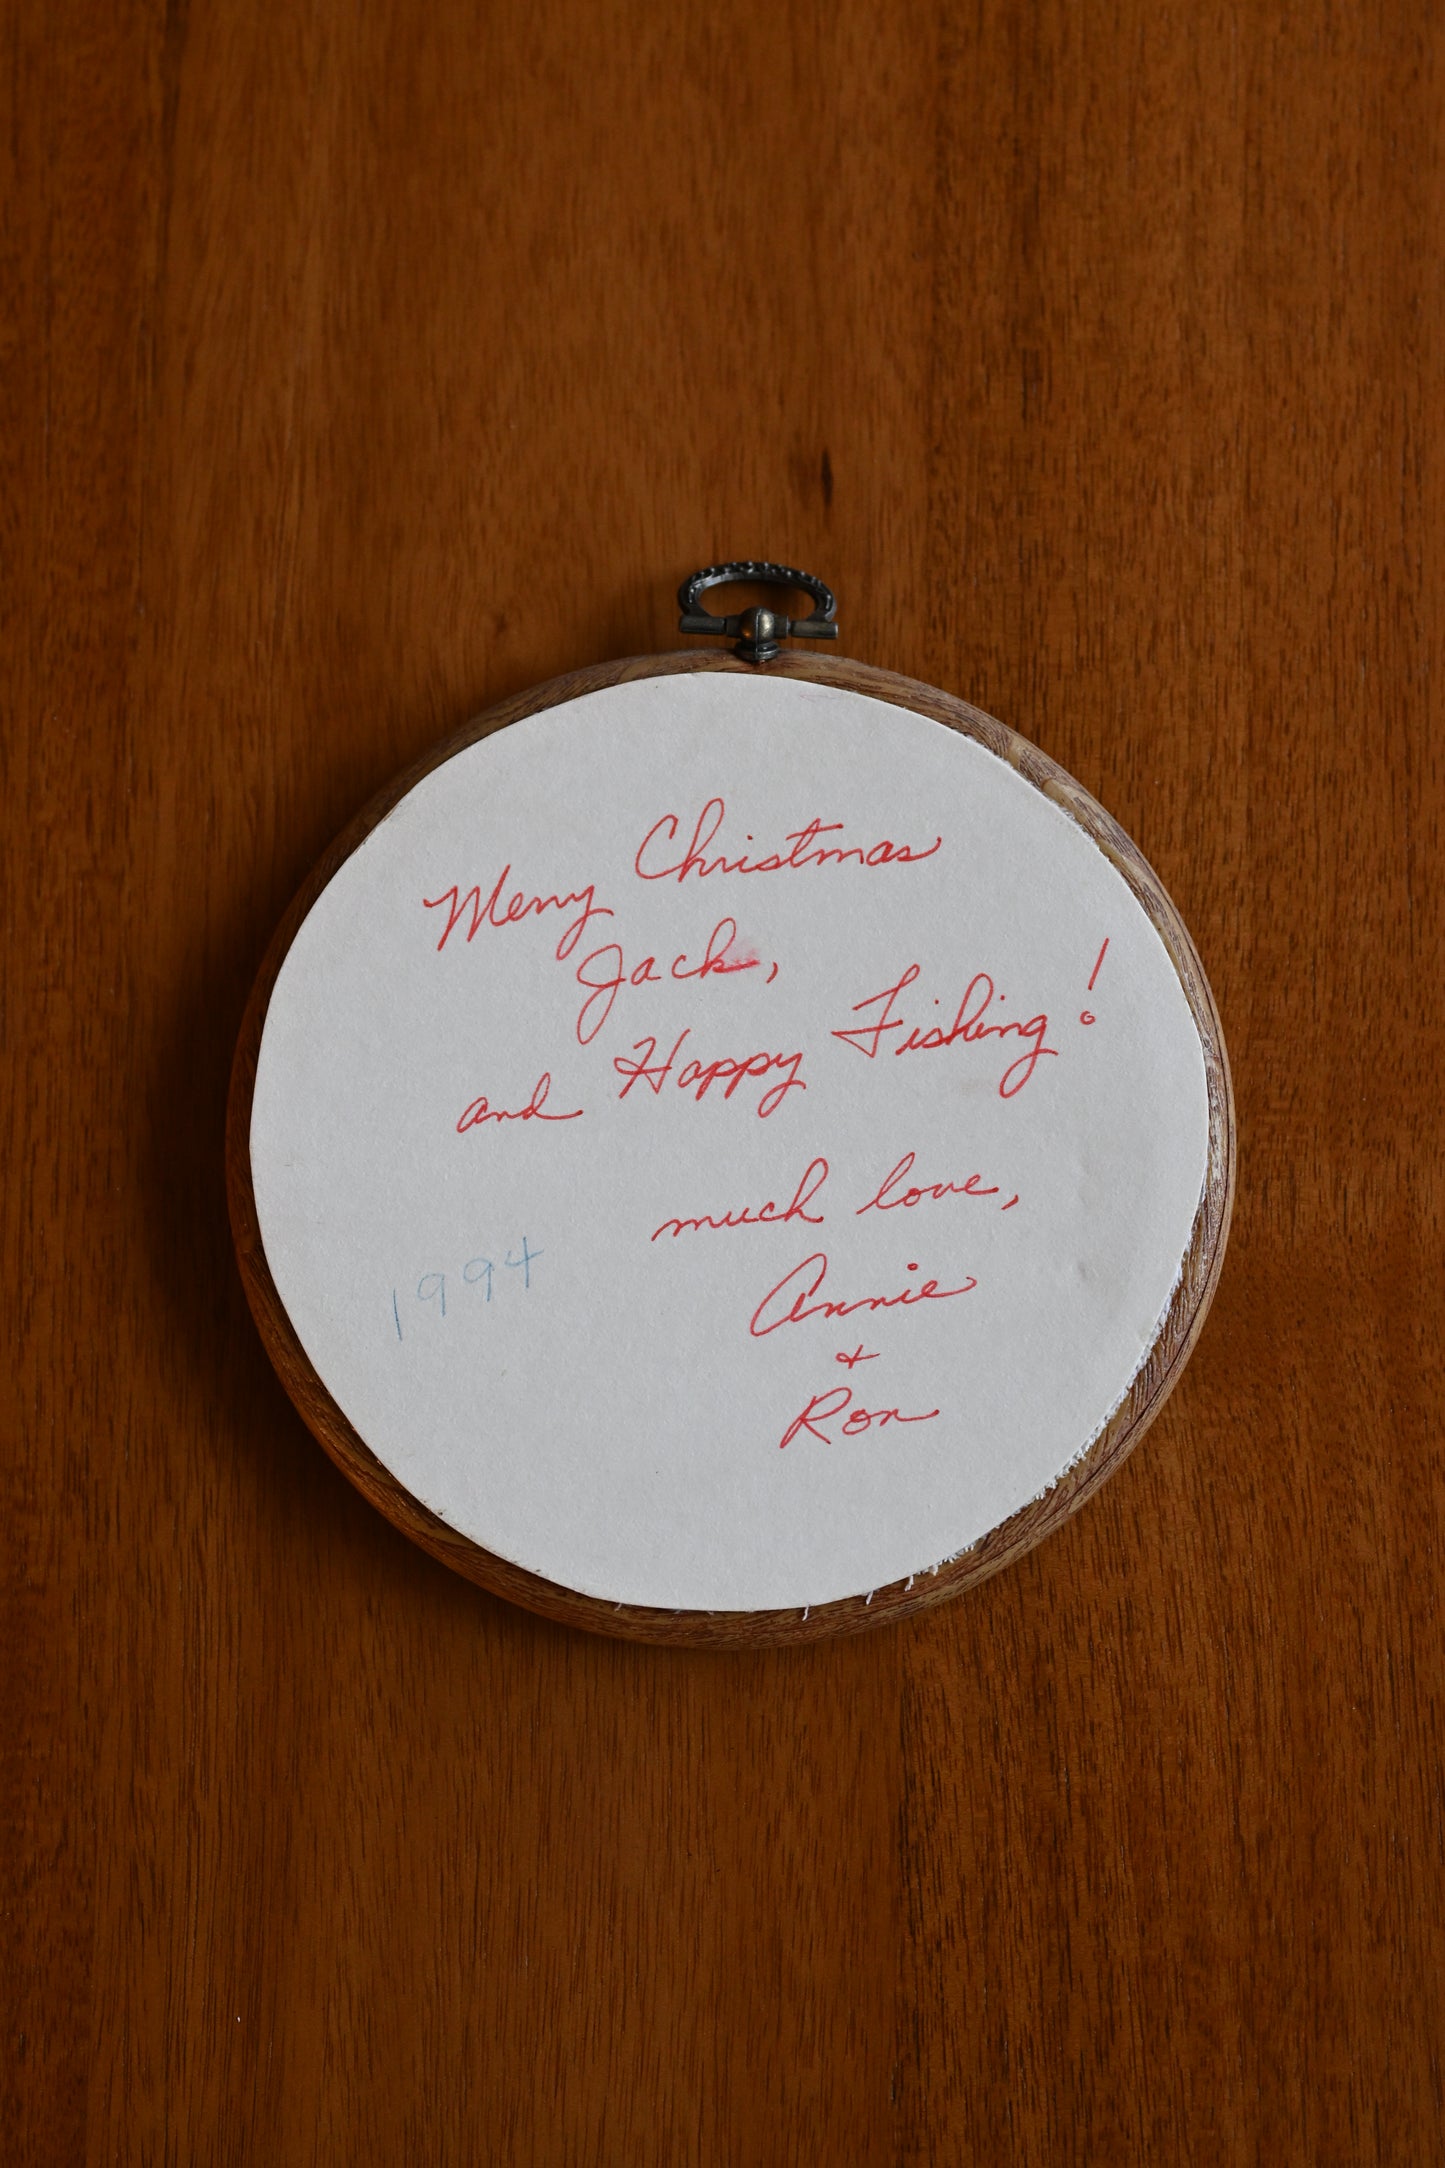 Merry Christmas
Jack,
and Happy Fishing!
much love,
Annie
+
Ron
1994